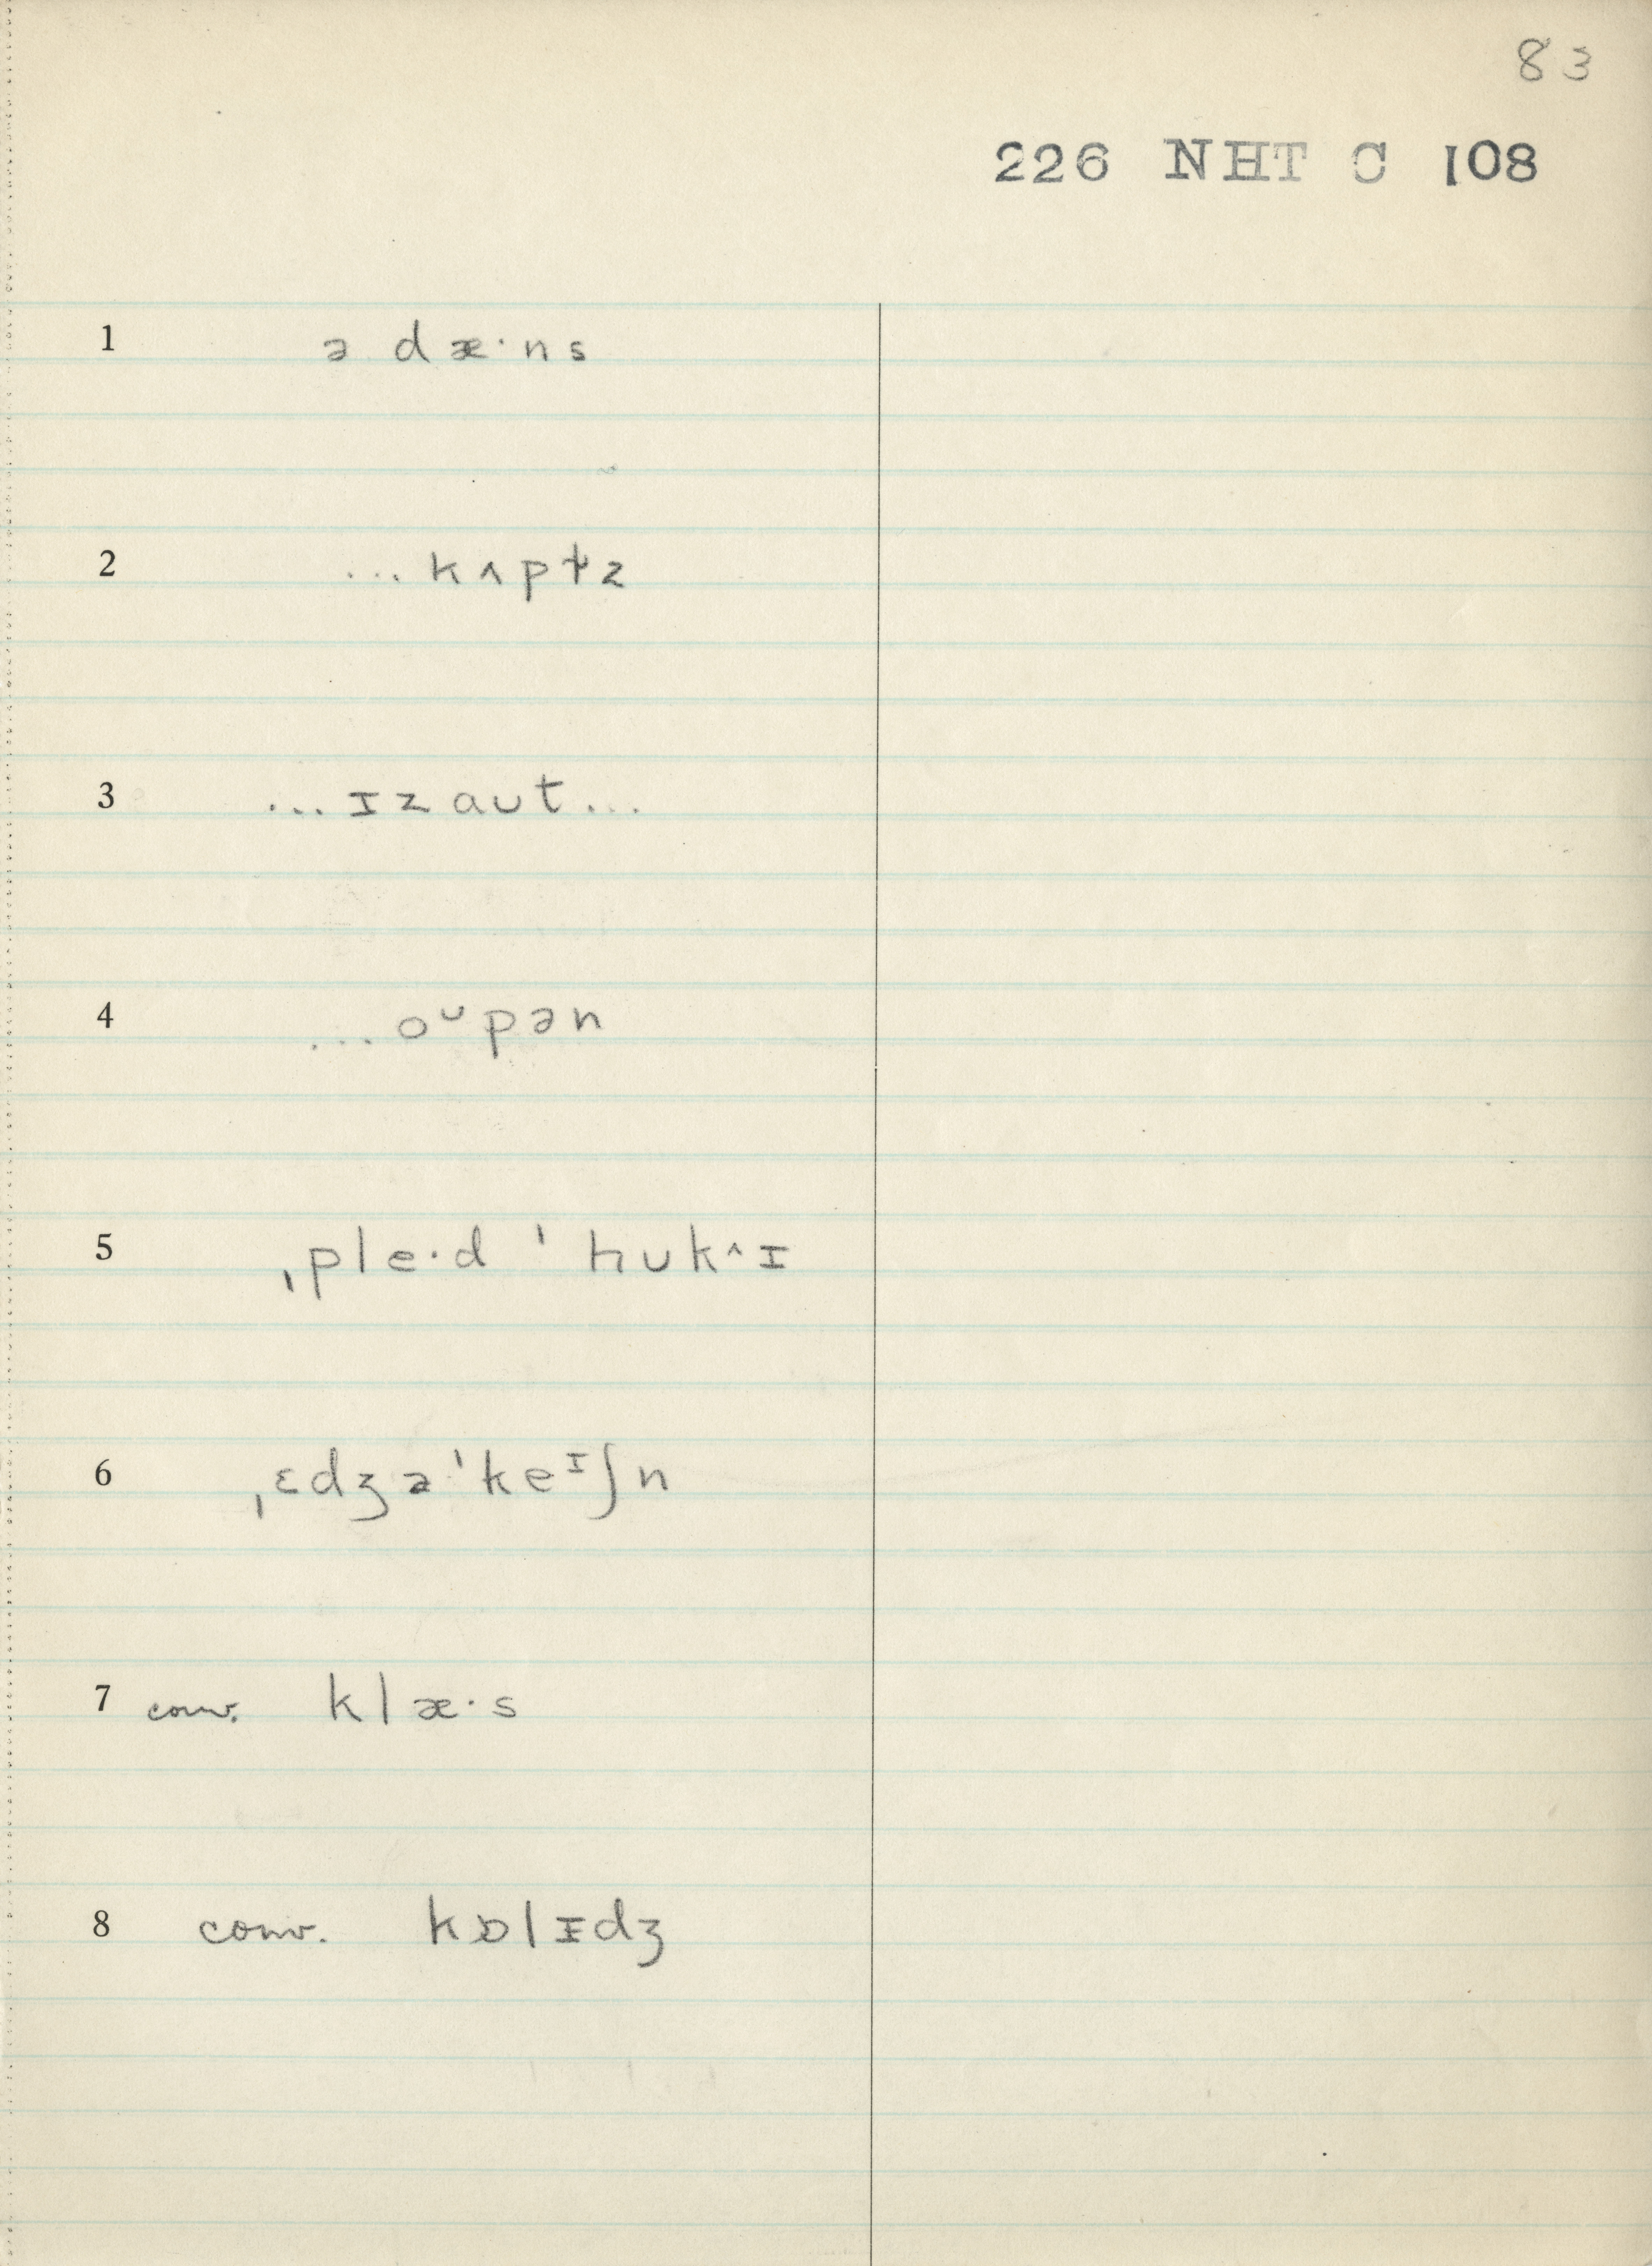 83
226 NHT C 108
1 ə dæ·ns
2 ...kʌpɫz
3 ...ɪzaut...
4 ...oᶷpən
5 ˌple·d ˈhuk^ɪ
6 ˌɛdʒəˈkeᶦʃn
7 conv. klæ·s
8 conv. kɒlɪdʒ